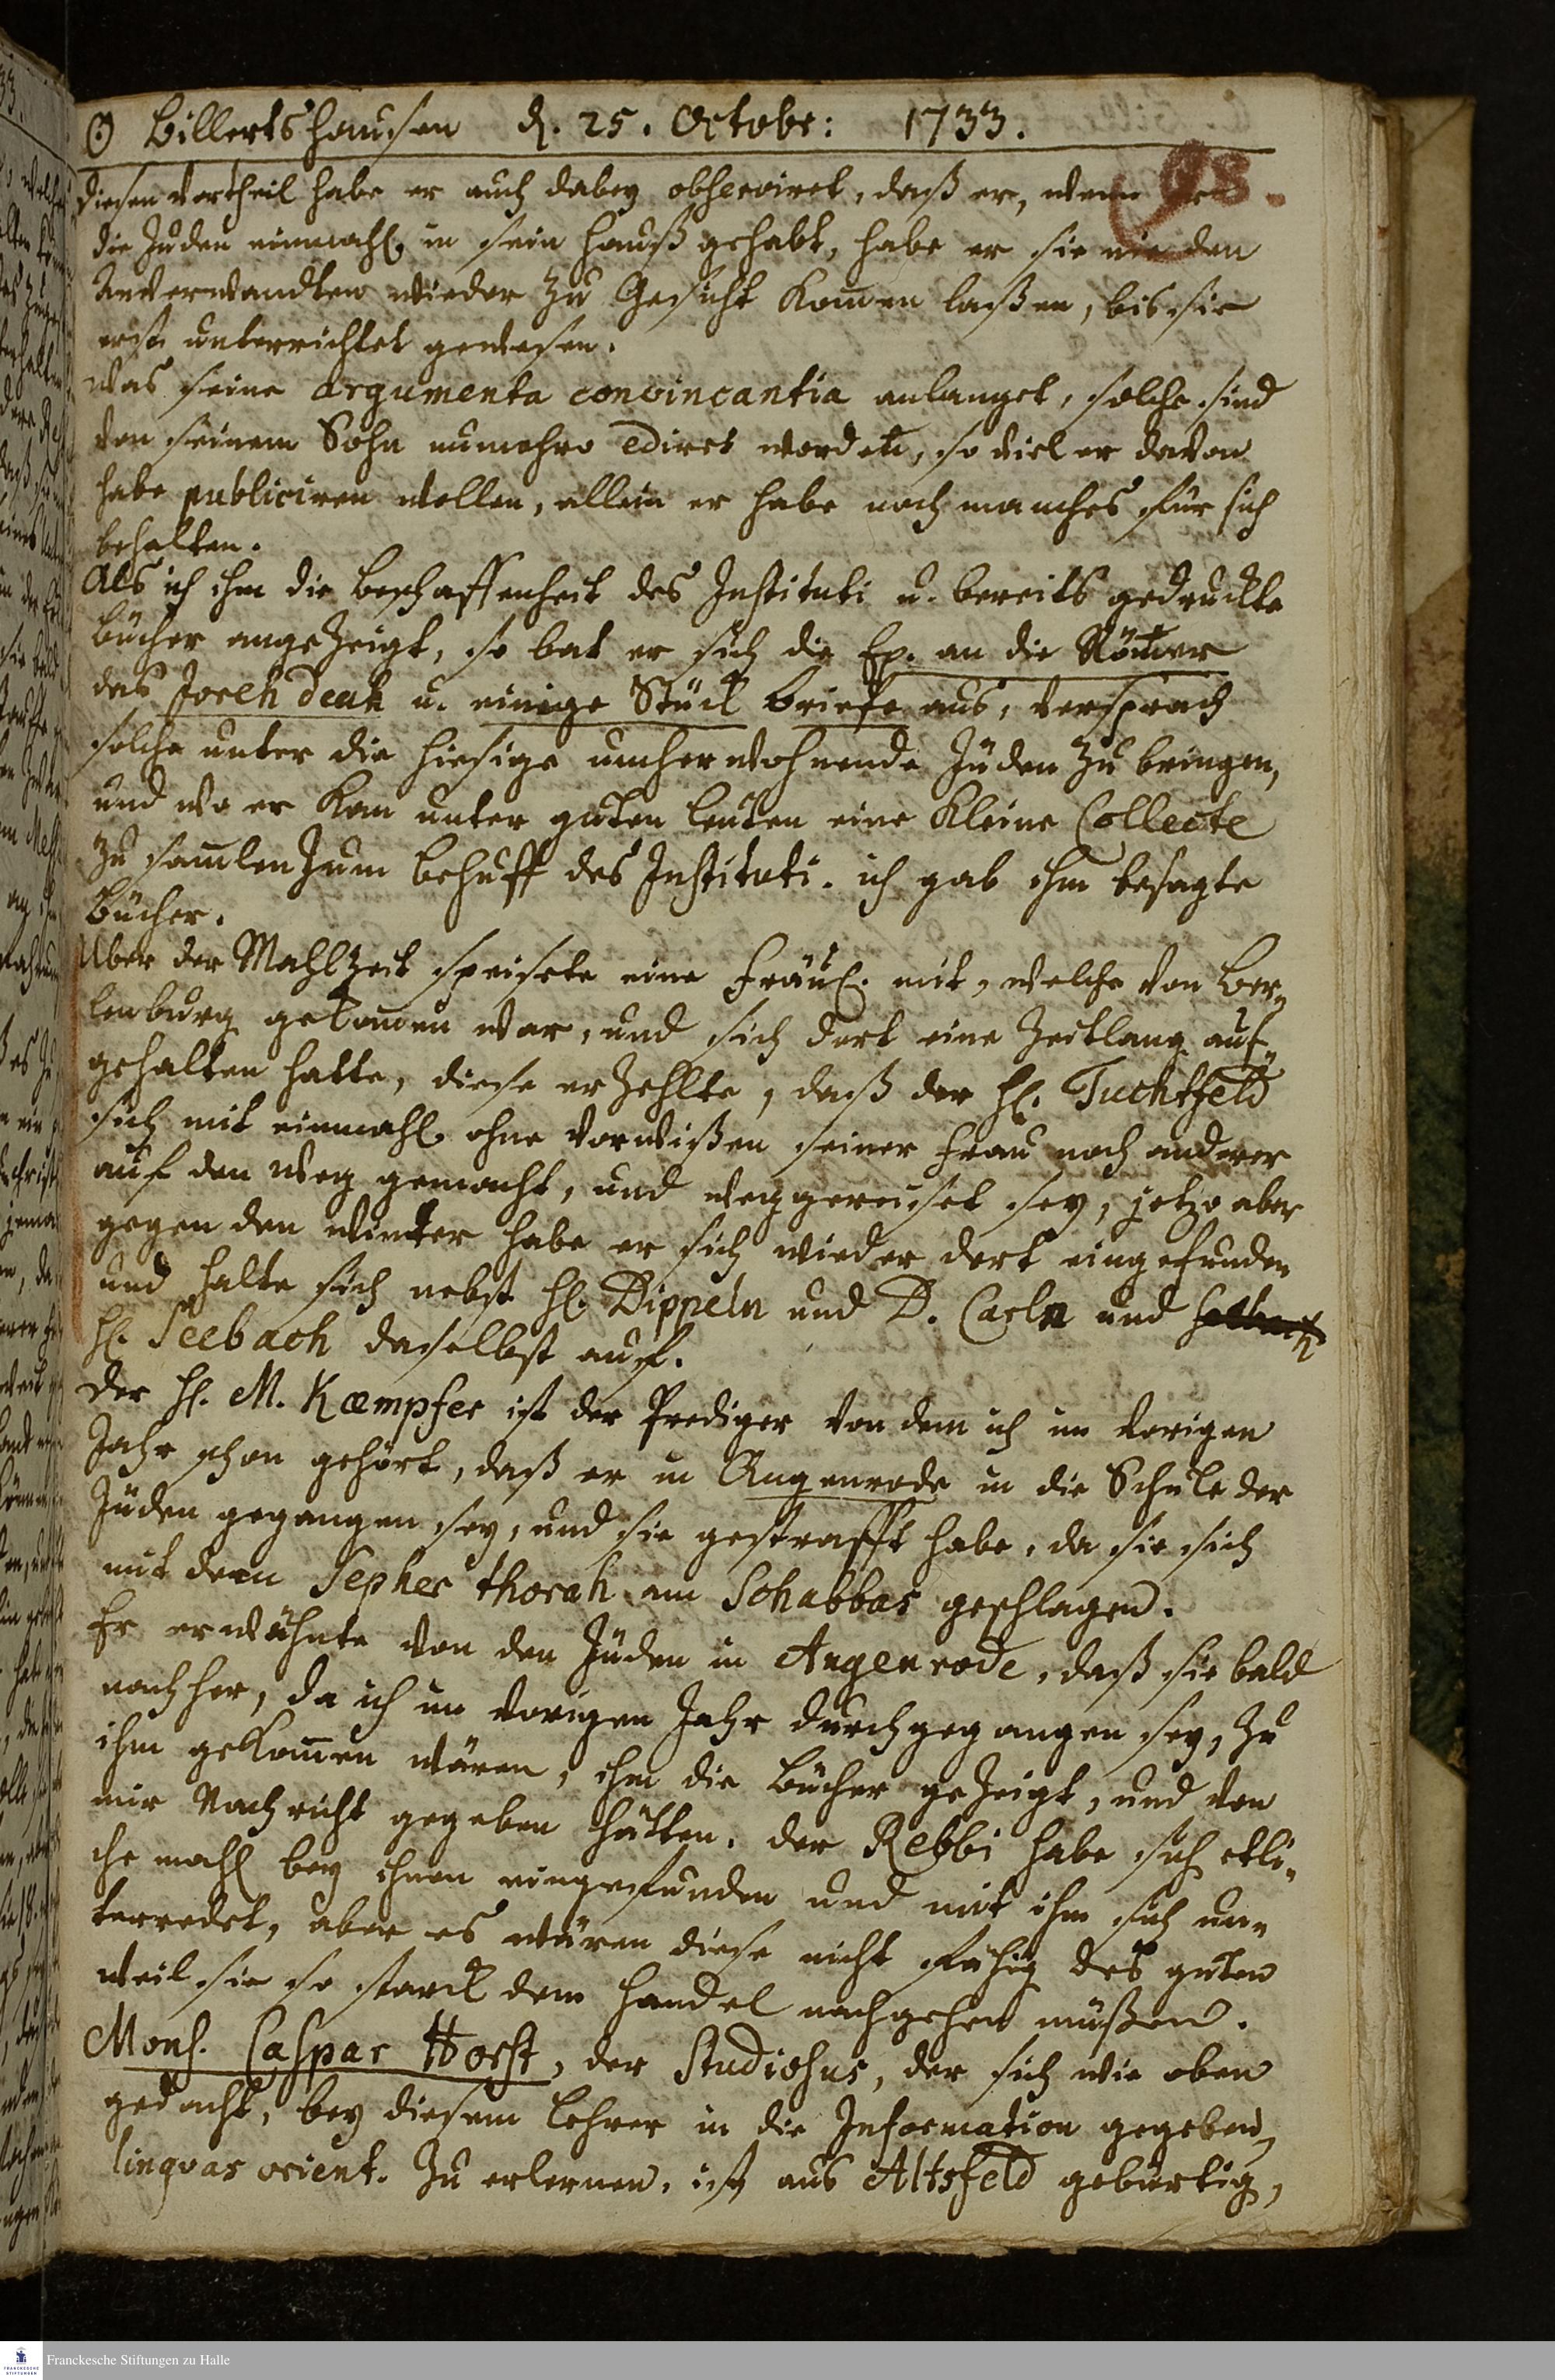 ☉ Billertshausen d. 25. Octobr: 1733.
98.
diesen Vortheil habe er auch dabey observiret, daß er, wenn er
die Juden einmahl in sein Hauß gehabt, habe er sie nie den
Anverwandten wieder zu Gesicht kom̅en laßen, bis sie
erst unterrichtet gewesen.
Was seine argumenta convincantia anlanget, solche sind
von seinem Sohn nunmehro ediret worden, so viel er davon
habe publiciren wollen, allein er habe noch manches für sich
behalten.
Als ich ihm die Beschaffenheit des Instituti u. bereits gedruckte
Bücher angezeigt, so bat er sich die Ep. an die Römer
das Joreh deah u. einige Stück Briefe aus, versprach
solche unter die hiesige umherwohnende Juden zu bringen,
und wo er kan unter guten Leuten eine kleine Collecte
zu sam̅len zum Behuff des Instituti. ich gab ihm besagte
Bücher.
Über der Mahlzeit speisete eine Fräul. mit, welche von Ber,,
lenburg gekom̅en war, und sich dort eine Zeitlang auf,,
gehalten hatte, diese erzehlte, daß der H. Tuchtfeld
sich mit einmahl ohne Vorwißen seiner Frau noch anderer
auf den Weg gemacht, und weggereiset sey, jetzo aber
gegen den Winter habe er sich wieder dort eingefunden
und halte sich nebst H. Dippeln und D. Carln und
H. Seebach daselbst auf.
Der H. M. Kæmpfer ist der Prediger von dem ich im vorigen
Jahr schon gehört, daß er in Angenrode in die Schule der
Juden gegangen sey, und sie gestrafft habe, da sie sich
mit dem Sepher thorah am Schabbas geschlagen.
Er erwähnte von den Juden in Angenrode, daß sie bald
nachher, da ich im vorigen Jahr durchgegangen sey, zu
ihm gekom̅en wären, ihm die Bücher gezeigt, und von
mir Nachricht gegeben hätten. der Rebbi habe sich etli,,
che mahl bey ihnen eingefunden und mit ihm sich un,,
terredet, aber es wären diese nicht fähig des guten
weil sie so starck dem Handel nachgehen müßen.
Mons. Caspar Horst, der Studiosus, der sich wie oben
gedacht, bey diesem Lehrer in die Information gegeben,
linguas orient. zu erlernen, ist aus Altsfeld gebürtig,
Franckesche Stiftungen zu Halle